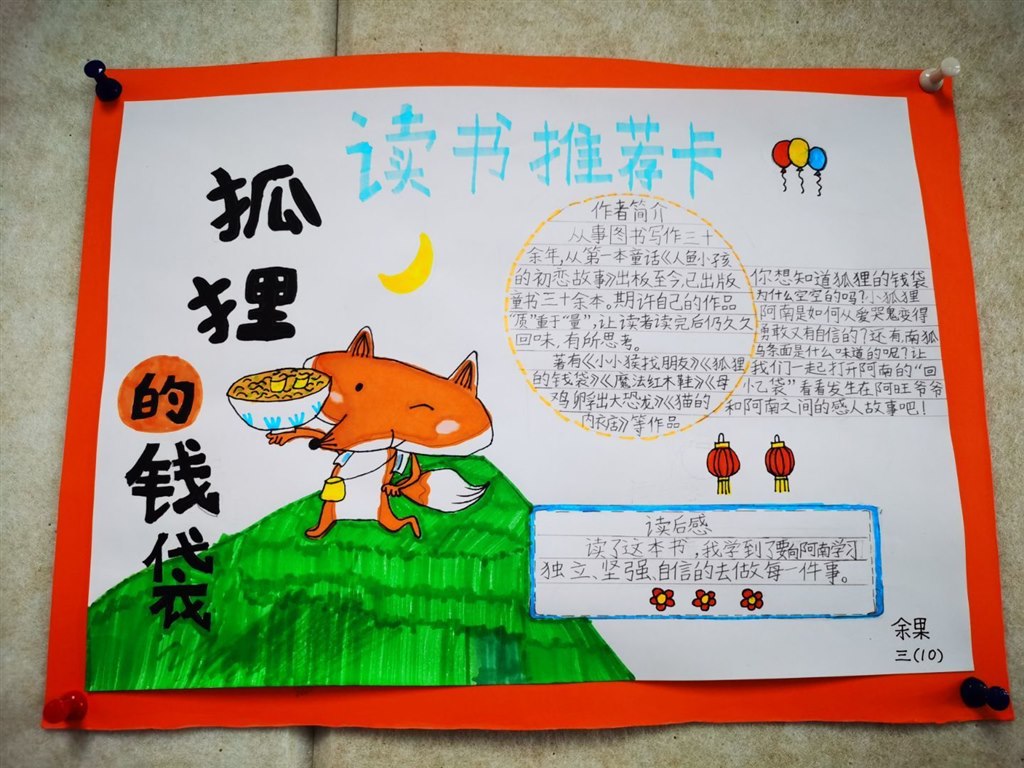 读书推荐卡
狐
狸
的
钱
袋
作者简介
从事图书写作三十
余年,从第一本童话《人鱼小孩
的初恋故事》出版至今,已出版
童书三十余本。期许自己的作品
“质”重于“量”,让读者读完后仍久久
回味,有所思考。
著有《小小猴找朋友》《狐狸
的钱袋》《魔法红木鞋》《母
鸡孵出大恐龙》《猫的
内衣店》等作品
你想知道狐狸的钱袋
为什么空空的吗?小狐狸
阿南是如何从爱哭鬼变得
勇敢又有自信的?还有,南狐
乌条面是什么味道的呢?让
我们一起打开阿南的“回
忆袋”看看发生在阿旺爷爷
和阿南之间的感人故事吧!
读后感
读了这本书,我学到了要向阿南学习
独立、坚强、自信的去做每一件事。
余果
三(10)